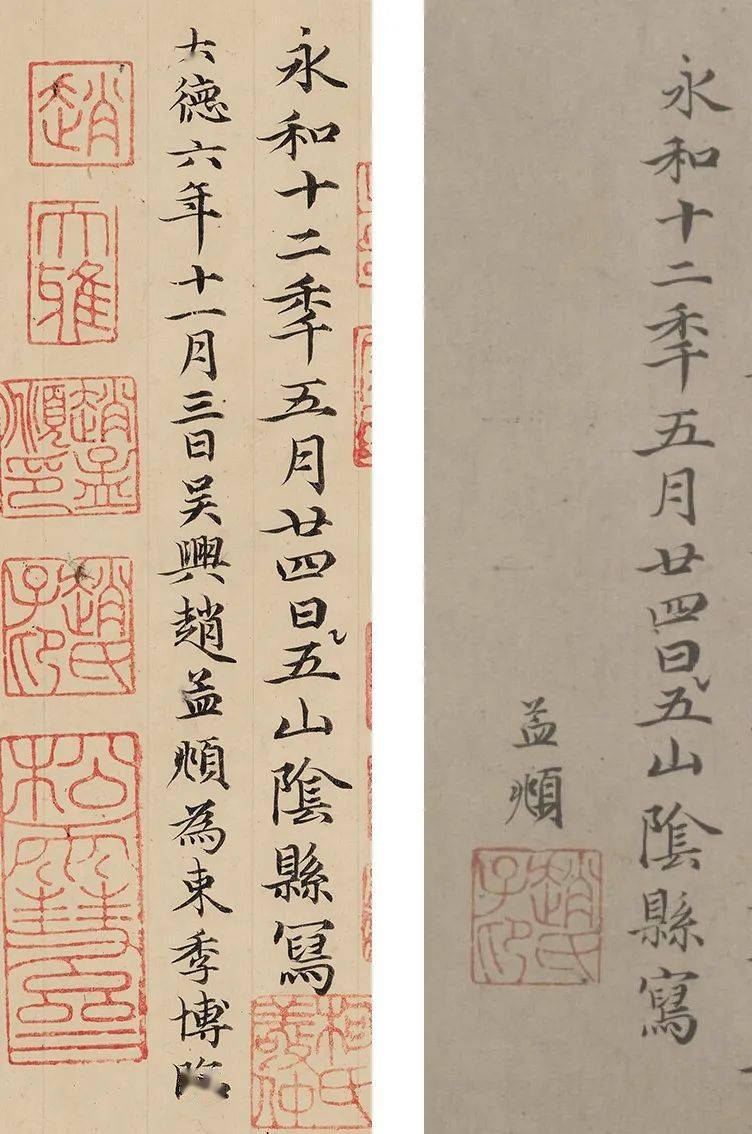 永和十二秊五月廿四日五山陰縣寫
大德六年十一月三日吴興趙孟頫為東季博臨
柯氏敬仲
趙
大雅
趙孟頫印
趙氏子昂
松雪齋
永和十二秊五月廿四日五山陰縣寫
孟頫
趙氏子昂